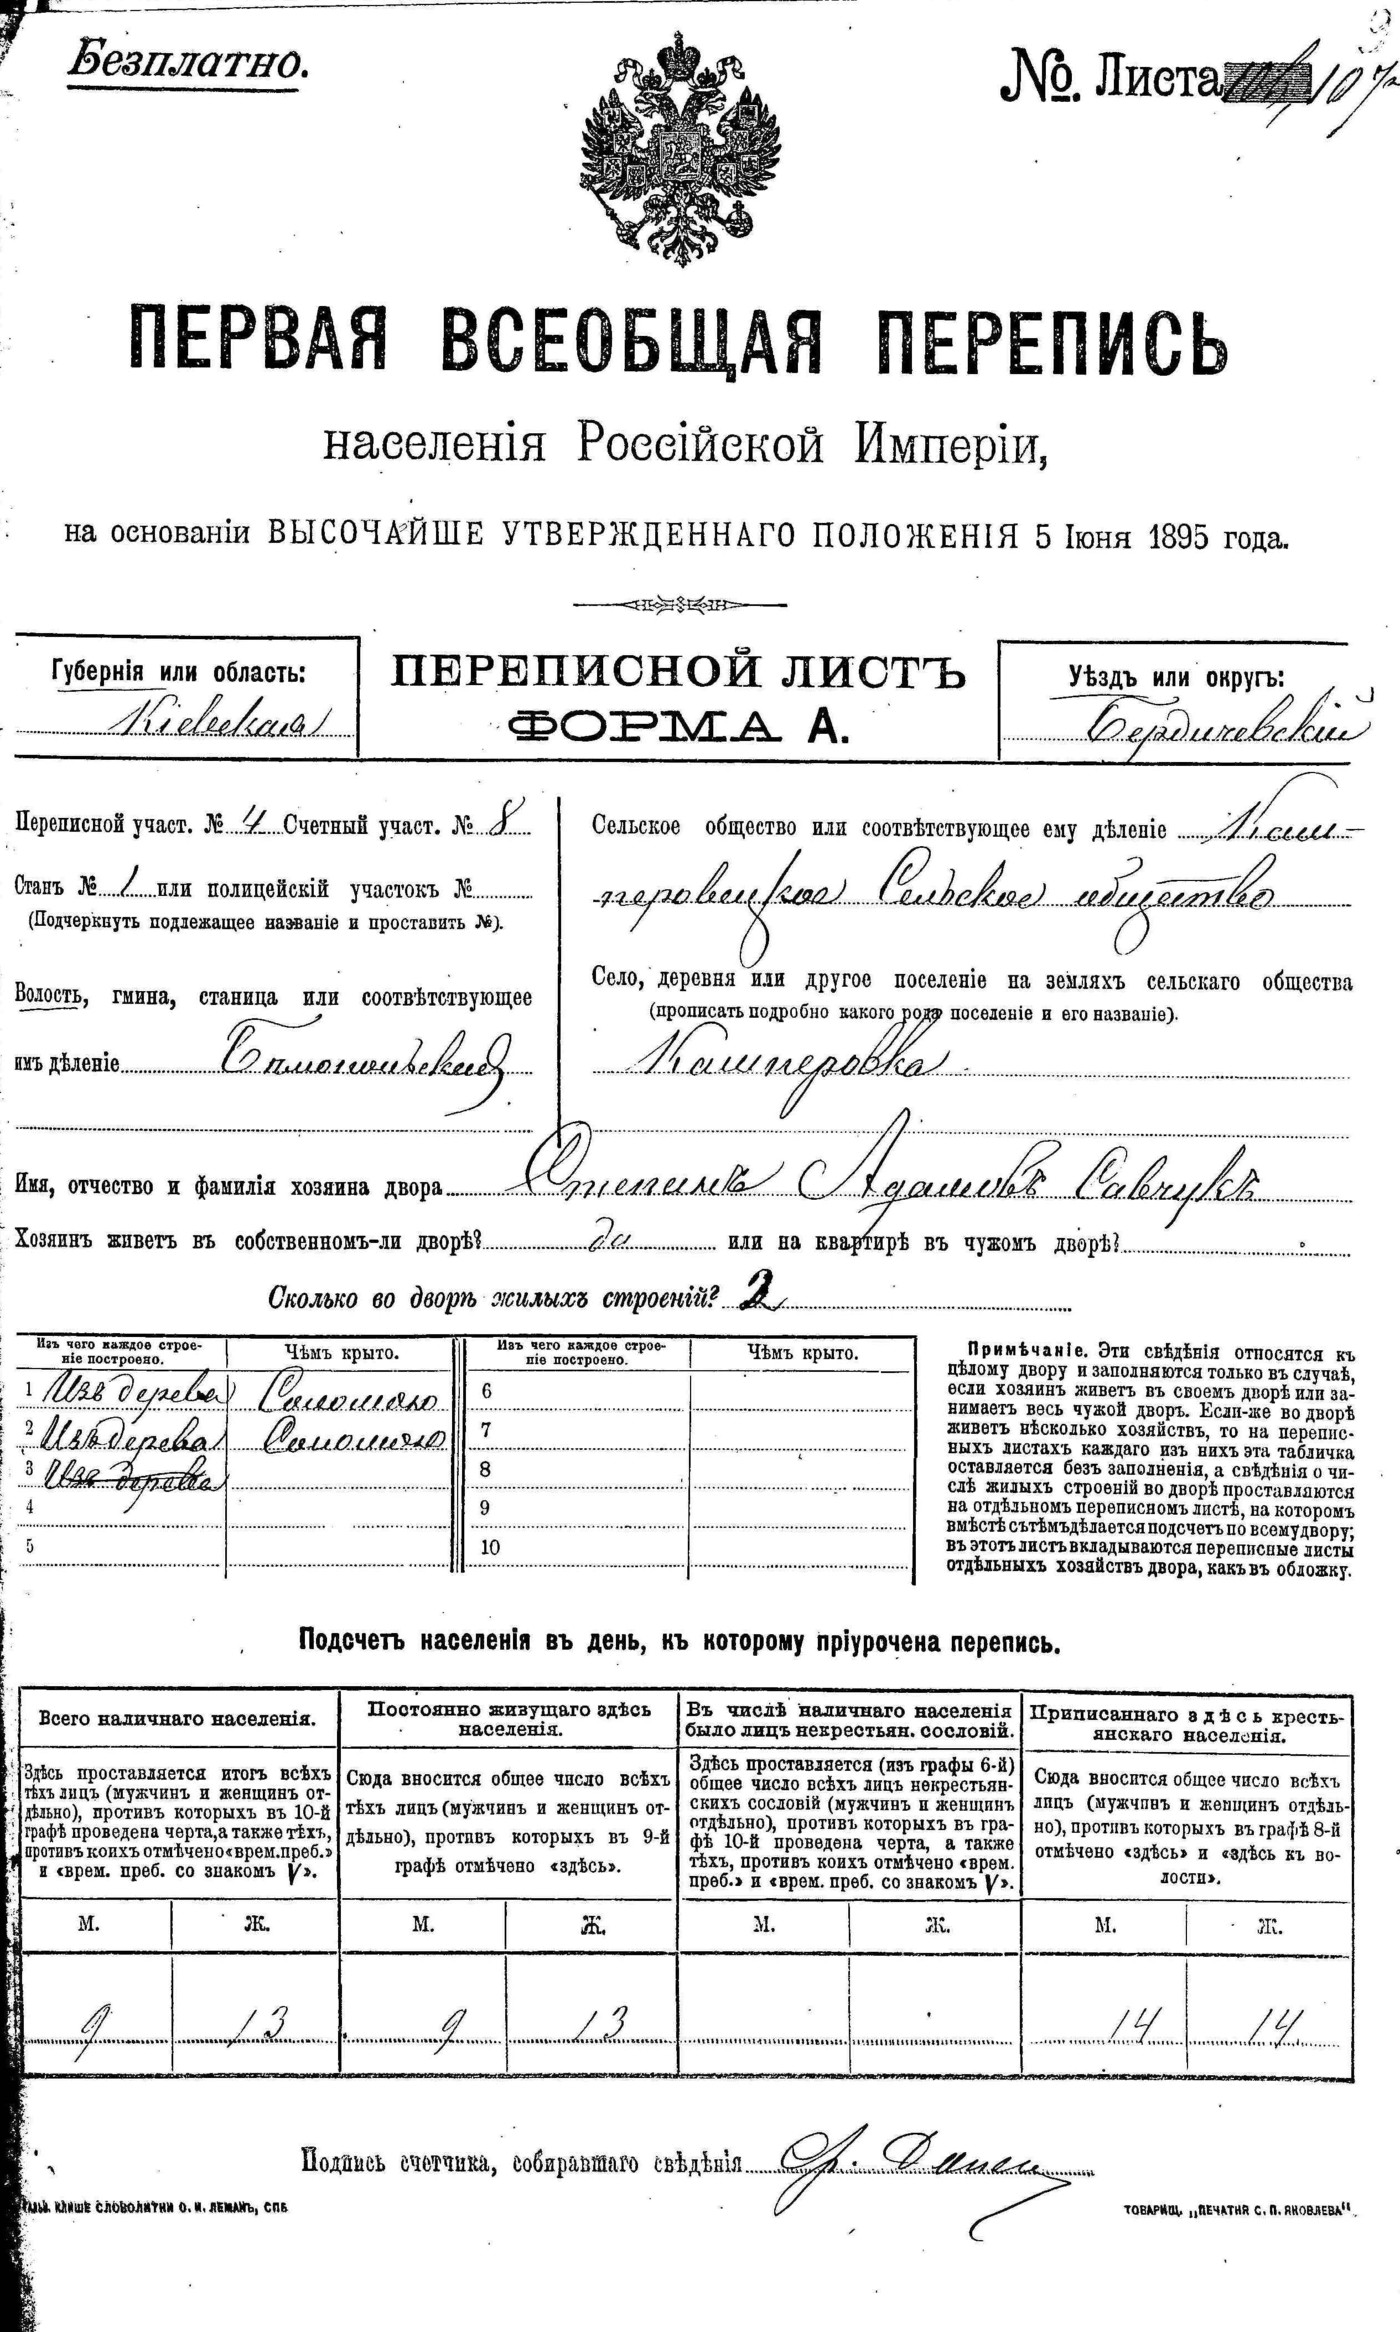 Безплатно.
№. Листа 107
ПЕРВАЯ ВСЕОБЩАЯ ПЕРЕПИСЬ
населенія Россійской Имперіи,
на основаніи ВЫСОЧАЙШЕ УТВЕРЖДЕННАГО ПОЛОЖЕНІЯ 5 Іюня 1895 года.
Губернія или область:
Кіевская
ПЕРЕПИСНОЙ ЛИСТЪ
ФОРМА А.
Уѣздъ или округъ:
Бердичевскій
Переписной участ. № 4 Счетный участ. № 8
Станъ № 1 или полицейскій участокъ №
(Подчеркнуть подлежащее названіе и проставить №).
Волость, гмина, станица или соотвѣтствующее
имъ дѣленіе
Сельское общество или соотвѣтствующее ему дѣленіе Каш-
перовецкое Сельское общество
Село, деревня или другое поселеніе на земляхъ сельскаго общества
(прописать подробно какого рода поселеніе и его названіе).
Кашперовка
Имя, отчество и фамилія хозяина двора Степанъ Адамовъ Савчукъ
Хозяинъ живетъ въ собственномъ-ли дворѣ? да или на квартирѣ въ чужомъ дворѣ?
Сколько во дворѣ жилыхъ строеній? 2
Изъ чего каждое строе-
ніе построено.
Чѣмъ крыто.
Изъ чего каждое строе-
ніе построено.
Чѣмъ крыто.
1 Изъ дерева Соломою 6
2 Изъ дерева Соломою 7
3 Изъ дерева 8
4 9
5 10
Примѣчаніе. Эти свѣдѣнія относятся къ
цѣлому двору и заполняются только въ случаѣ,
если хозяинъ живетъ въ своемъ дворѣ или за-
нимаетъ весь чужой дворъ. Если-же во дворѣ
живетъ нѣсколько хозяйствъ, то на перепис-
ныхъ листахъ каждаго изъ нихъ эта табличка
оставляется безъ заполненія, а свѣдѣнія о чи-
слѣ жилыхъ строеній во дворѣ проставляются
на отдѣльномъ переписномъ листѣ, на которомъ
вмѣстѣ съ тѣмъ дѣлается подсчетъ по всему двору;
въ этотъ листъ вкладываются переписные листы
отдѣльныхъ хозяйствъ двора, какъ въ обложку.
Подсчетъ населенія въ день, къ которому пріурочена перепись.
Всего наличнаго населенія.
Постоянно живущаго здѣсь
населенія.
Въ числѣ наличнаго населенія
было лицъ некрестьян. сословій.
Приписаннаго здѣсь кресть-
янскаго населенія.
Здѣсь проставляется итогъ всѣхъ
тѣхъ лицъ (мужчинъ и женщинъ от-
дѣльно), противъ которыхъ въ 10-й
графѣ проведена черта, а также тѣхъ,
противъ коихъ отмѣчено «врем. преб.»
и «врем. преб. со знакомъ V».
Сюда вносится общее число всѣхъ
тѣхъ лицъ (мужчинъ и женщинъ от-
дѣльно), противъ которыхъ въ 9-й
графѣ отмѣчено «здѣсь».
Здѣсь проставляется (изъ графы 6-й)
общее число всѣхъ лицъ некрестьян-
скихъ сословій (мужчинъ и женщинъ
отдѣльно), противъ которыхъ въ гра-
фѣ 10-й проведена черта, а также
тѣхъ, противъ коихъ отмѣчено «врем.
преб.» и «врем. преб. со знакомъ V».
Сюда вносится общее число всѣхъ
лицъ (мужчинъ и женщинъ отдѣль-
но), противъ которыхъ въ графѣ 8-й
отмѣчено «здѣсь» и «здѣсь къ во-
лости».
М. Ж. М. Ж. М. Ж. М. Ж.
9 13 9 13 14 14
Подпись счетчика, собиравшаго свѣдѣнія
КЛИШЕ СЛОВОЛИТНИ О. И. ЛЕМАНЪ, СПБ
ТОВАРИЩ. „ПЕЧАТНЯ С. П. ЯКОВЛЕВА"